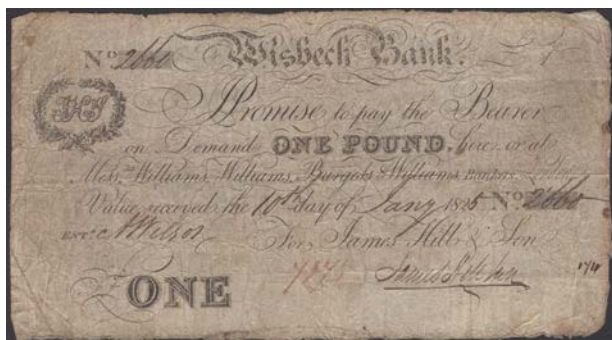 No 2660 Wisbech Bank.
JHS
I Promise to pay the Bearer
on Demand ONE POUND, here, or at
Messrs Williams, Williams, Burgess & Williams, Bankers, London
Value received the 10th day of Jany 1825 No 2660
ENTd Wilson For, James Hill & Son
£ONE